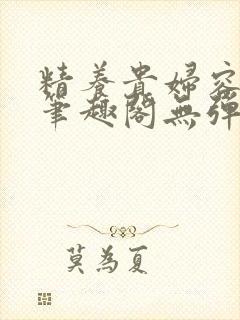 精養貴婦容
筆趣閣無彈
莫為夏